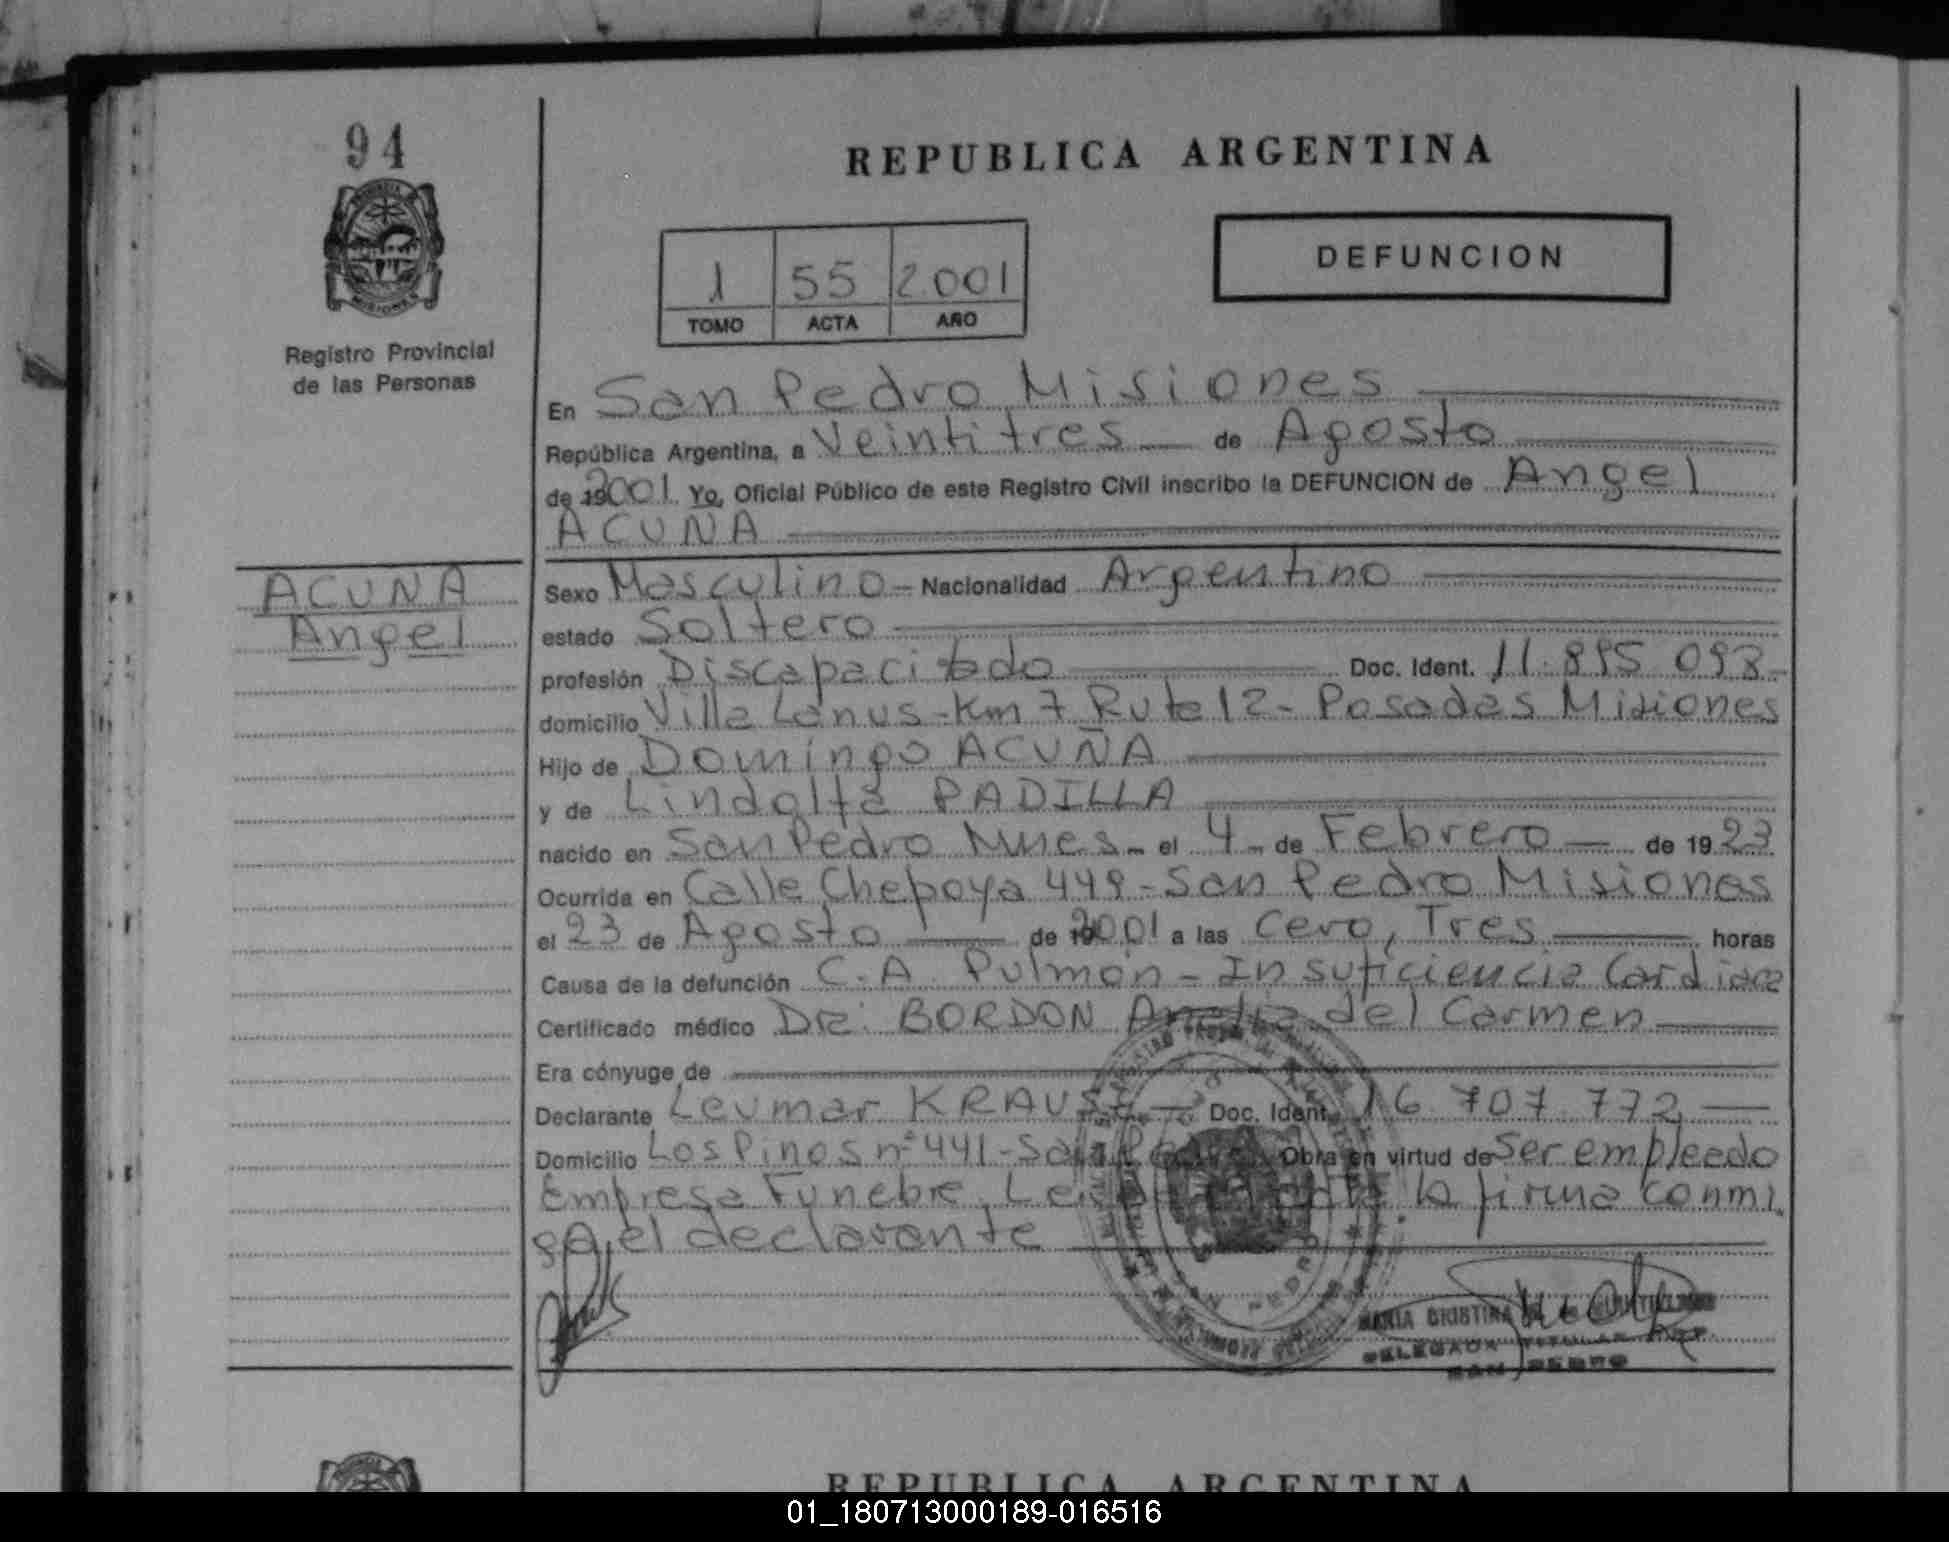 94
REPUBLICA ARGENTINA
1 55 2.001
TOMO ACTA AÑO
DEFUNCION
Registro Provincial
de las Personas
En San Pedro Misiones
República Argentina, a Veintitres de Agosto
de 2001 Yo, Oficial Público de este Registro Civil inscribo la DEFUNCION de Angel
ACUÑA
ACUÑA
Angel
Sexo Masculino - Nacionalidad Argentino
estado Soltero
profesión Discapacitado Doc. Ident. 11.895.093-
domicilio Villa Lanus - Km 7 Ruta 12 - Posadas Misiones
Hijo de Domingo ACUÑA
y de Lindolfa PADILLA
nacido en San Pedro Mnes - el 4 - de Febrero - de 1923
Ocurrida en Calle Chepoya 449 - San Pedro Misiones
el 23 de Agosto de 2001 a las Cero, Tres horas
Causa de la defunción C.A. Pulmón - Insuficiencia Cardiaca
Certificado médico Dra. BORDON Analia del Carmen
Era cónyuge de
Declarante Leumar KRAUSE - Doc. Ident. 16.707.772
Domicilio Los Pinos nº 441 - San Pedro Obra en virtud de Ser empleado
Empresa Funebre. la firma conmi
go el declarante
MARIA CRISTINA
DELEGADA TITULAR
SAN PEDRO
REPUBLICA ARGENTINA
01_180713000189-016516